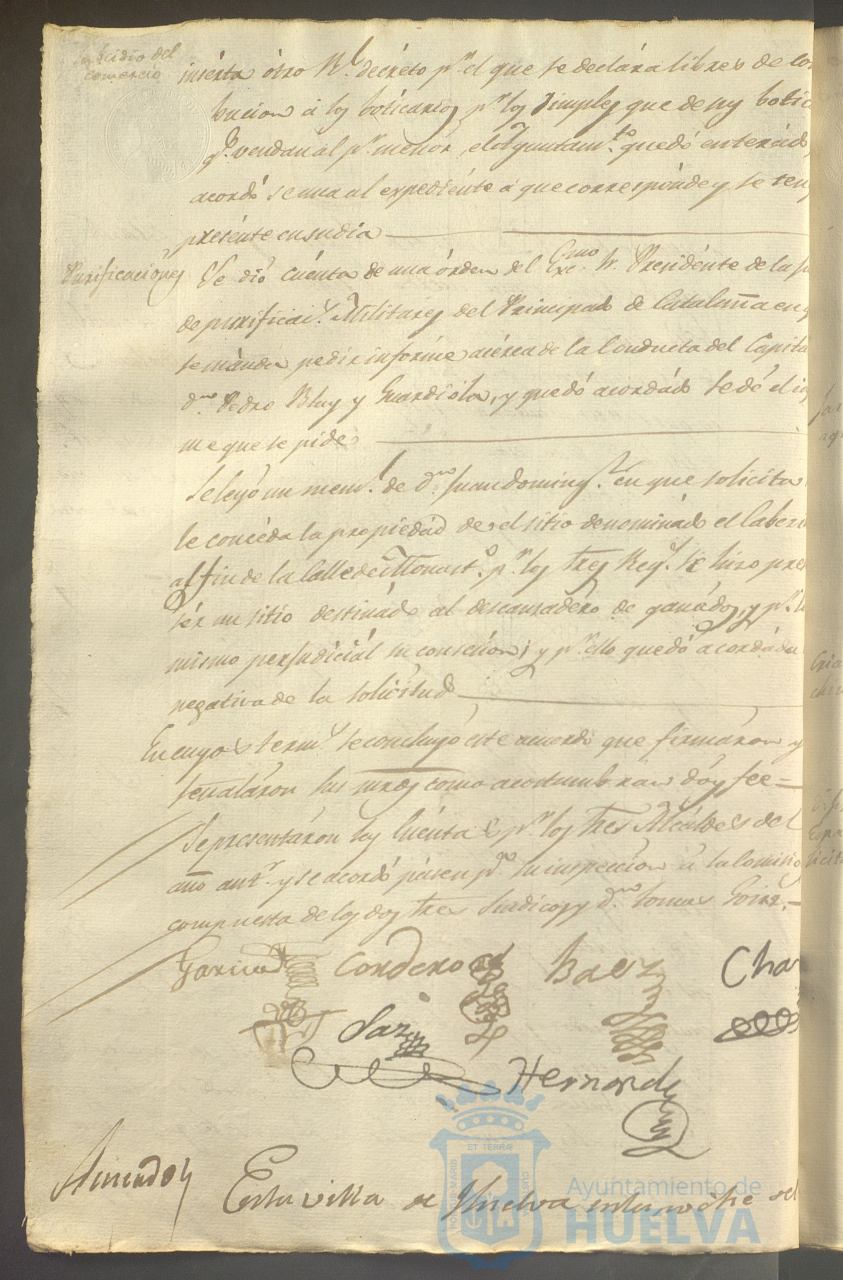 Subsidio del
comercio
inserta otro Rl. decreto pr. el que se declara libres de con
bucion á los boticarios pr. los simples que de sus botic
qe. vendan al pr. menor, el Ayuntamto. quedó enterado,
acordó se una al expediente á que corresponde y se ten
presente en su dia
Purificaciones
Se dió cuenta de una órden del Excmo. Sr. Presidente de la
de purificac. Militares del Principado de Cataluña en q
se manda pedir informe acerca de la Conducta del Capita
dn. Pedro Bluy y Guardiola, y quedó acordado se dé el in
me que se pide
Se leyó un meml. de dn. Juan Doming. en que solicita
le conceda la propiedad de el sitio denominado el
al fin de la Calle de Monast.o pr. los tres Rey. se hizo pre
ser un sitio destinado al descansadero de ganados, y pr. lo
mismo perjudicial su concesion; y pr. ello quedó acordada
negativa de la solicitud
En cuyos term. se concluyó este acuerdo que firmaron y
señalaron sus mrds. como acostumbran doy fee =
Se presentaron las Cuentas pr. los tres Alcaldes del
año antr. y se acordó pasen pa. su inspeccion á la Comisio
compuesta de los dos tres Sindicos y dn. Tomas
Garcia Cordero Baez Cha
Saz
Hernandz
Acuerdo
En la villa de Huelva en la noche del
ET TERRÆ
Ayuntamiento de
HUELVA